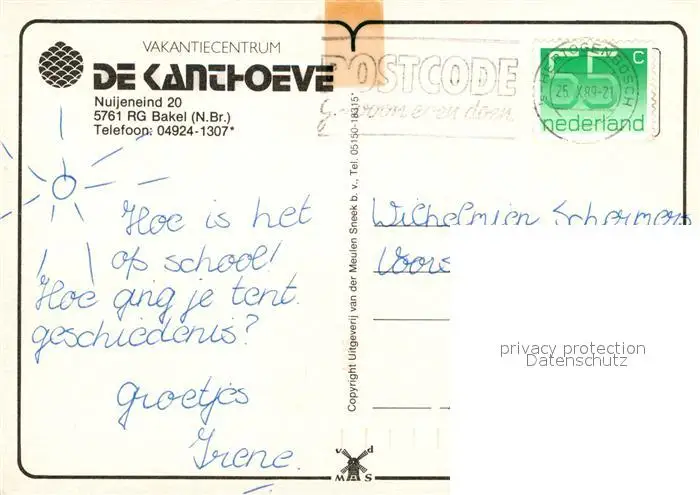 VAKANTIECENTRUM
DE KANTHOEVE
Nuijeneind 20
5761 RG Bakel (N.Br.)
Telefoon: 04924-1307*
POSTCODE
gewoon even doen
'S-HERTOGENBOSCH
25 X 89-21
55 c
nederland
Hoe is het
op school!
Hoe ging je tent.
geschiedenis?
Groetjes
Irene.
Copyright Uitgeverij van der Meulen Sneek b.v., Tel. 05150-18315*
Wilhelmien Schermers
privacy protection
Datenschutz
v d
M S